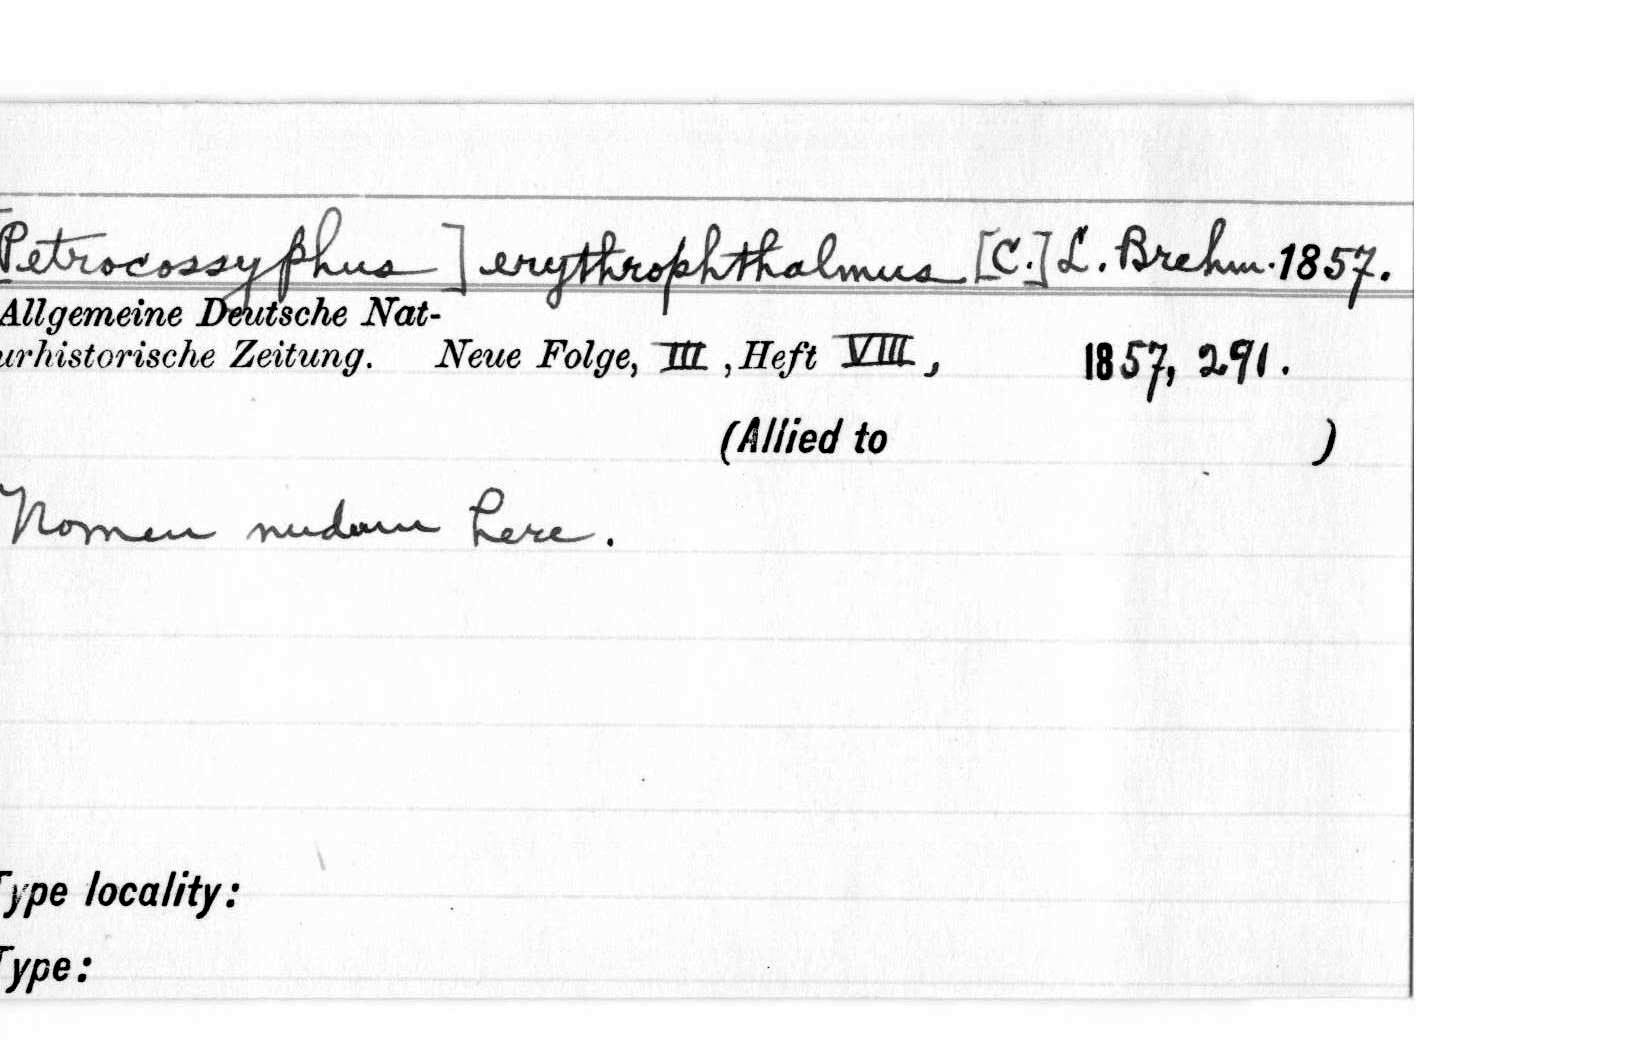 [Petrocossyphus] erythrophthalmus [C.] L. Brehm. 1857.
Allgemeine Deutsche Nat-
urhistorische Zeitung. Neue Folge, III, Heft VIII, 1857, 291.
(Allied to )
Nomen nudum here.
Type locality:
Type: